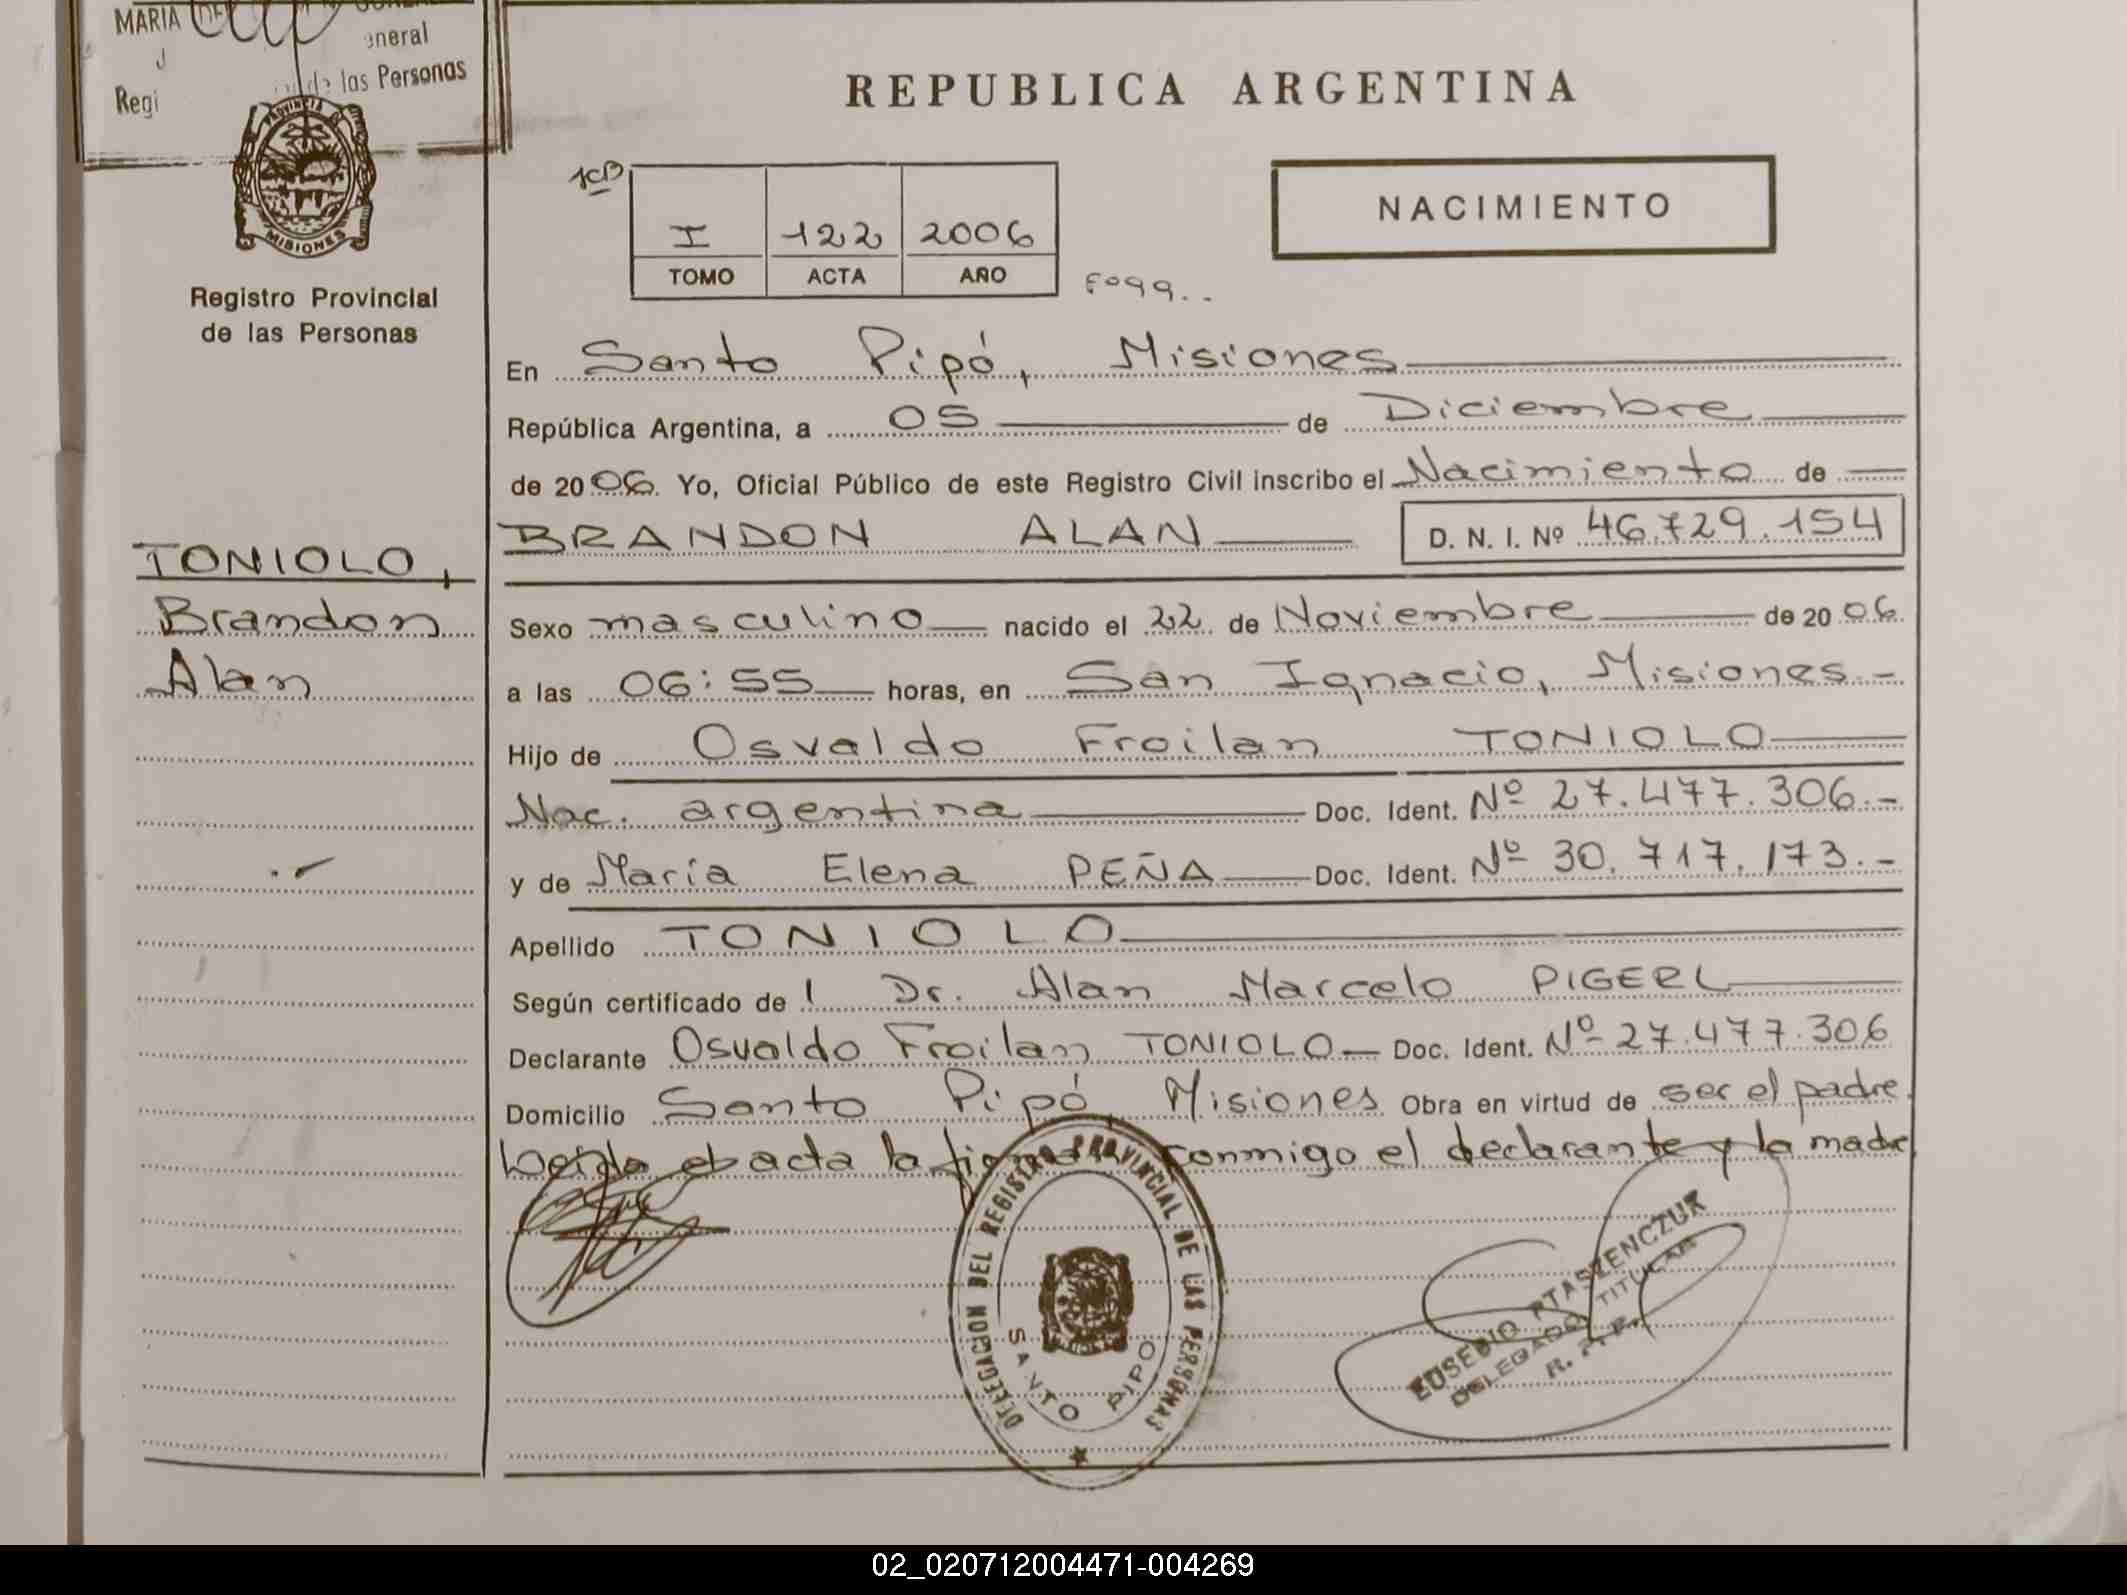 MARIA DE
eneral
de las Personas
Regi
PROVINCIA DE
MISIONES
Registro Provincial
de las Personas
REPUBLICA ARGENTINA
I 122 2006
TOMO ACTA AÑO
Fº99..
NACIMIENTO
En Santo Pipó, Misiones
República Argentina, a 05 de Diciembre
de 2006. Yo, Oficial Público de este Registro Civil inscribo el Nacimiento de
BRANDON ALAN D. N. I. Nº 46.729.154
TONIOLO,
Brandon
Alan
Sexo masculino nacido el 22 de Noviembre de 2006
a las 06:55 horas, en San Ignacio, Misiones.-
Hijo de Osvaldo Froilan TONIOLO
Nac. argentina Doc. Ident. Nº 27.477.306.-
y de María Elena PEÑA Doc. Ident. Nº 30.717.173.-
Apellido TONIOLO
Según certificado de l Dr. Alan Marcelo PIGERL
Declarante Osvaldo Froilan TONIOLO Doc. Ident. Nº 27.477.306
Domicilio Santo Pipó, Misiones Obra en virtud de ser el padre.
Leida el acta la firma conmigo el declarante y la madre
DELEGACION DEL REGISTRO PROVINCIAL DE LAS PERSONAS
SANTO PIPO
EUSEBIO PTASZENCZUK
DELEGADO TITULAR
R. P. P.
02_020712004471-004269